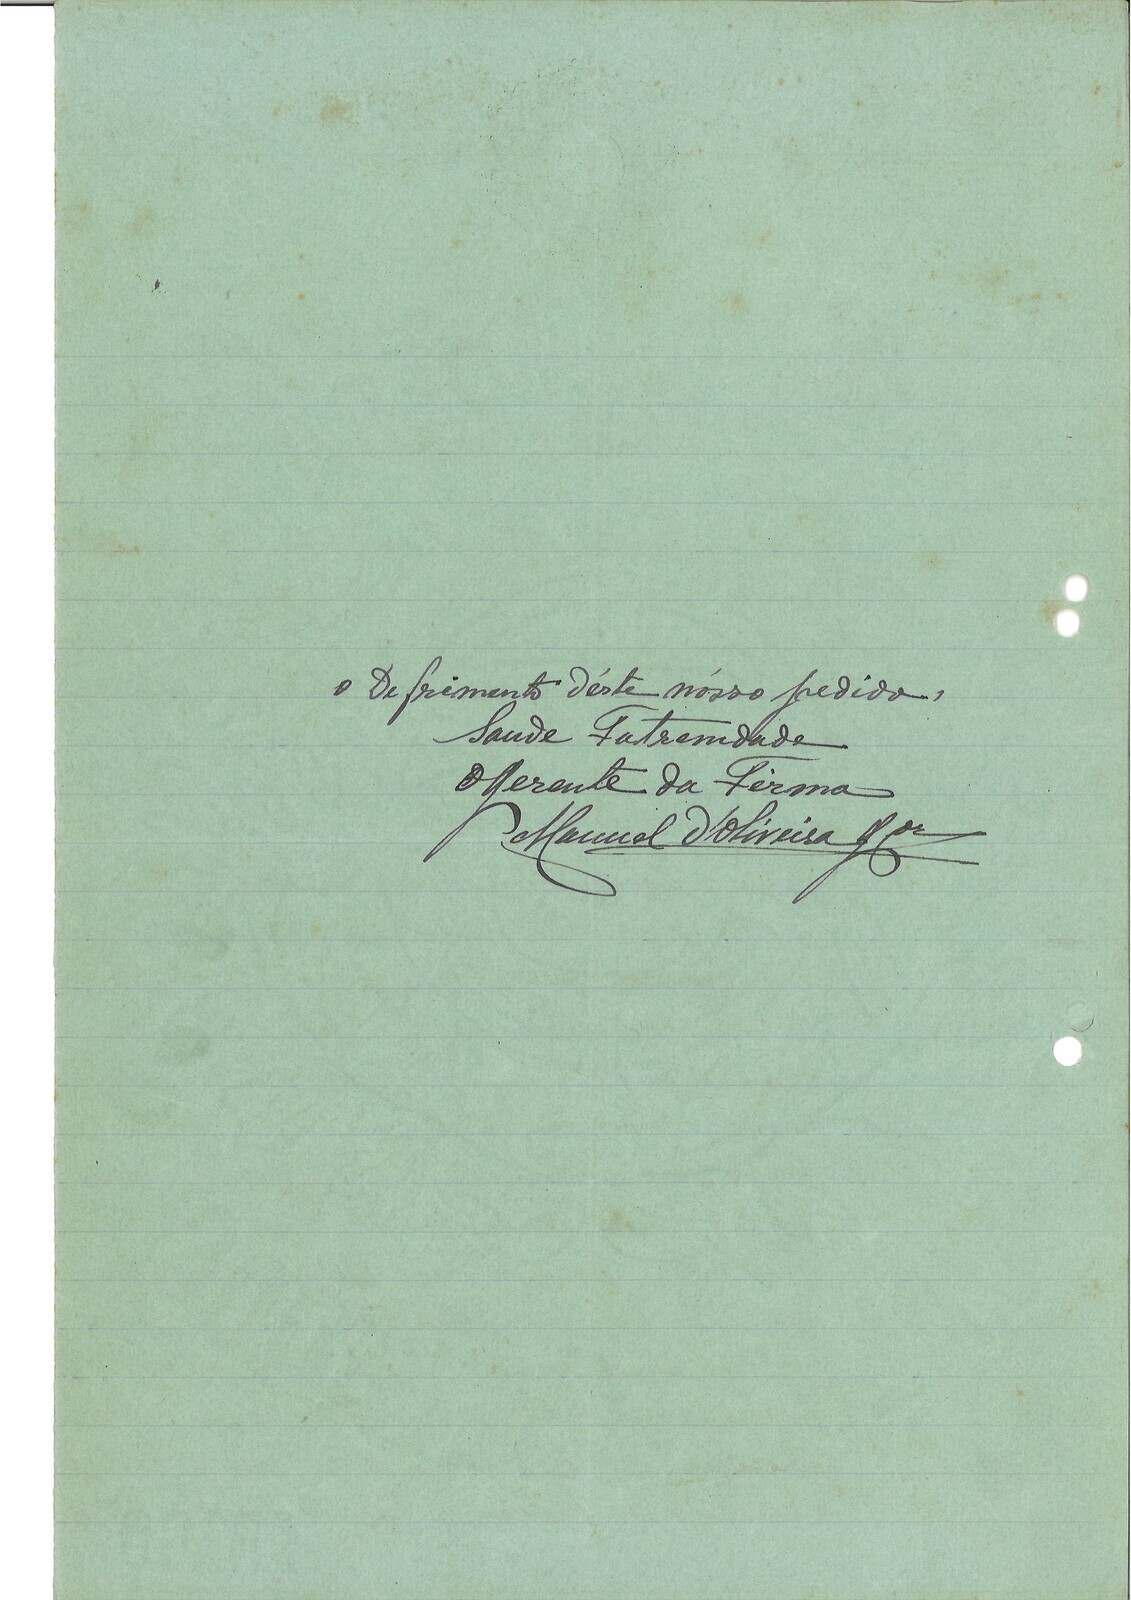 o Defrimento déste nósso pedido,
Saude Fatrendade
O Gerente da Firma
Manuel d'Oliveira